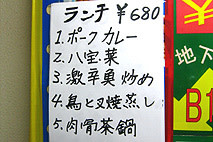 ランチ ¥680
1.ポークカレー
2.八宝菜
3.激辛臭炒め
4.鳥と叉焼蒸し
5.肉骨茶鍋
地下
B1